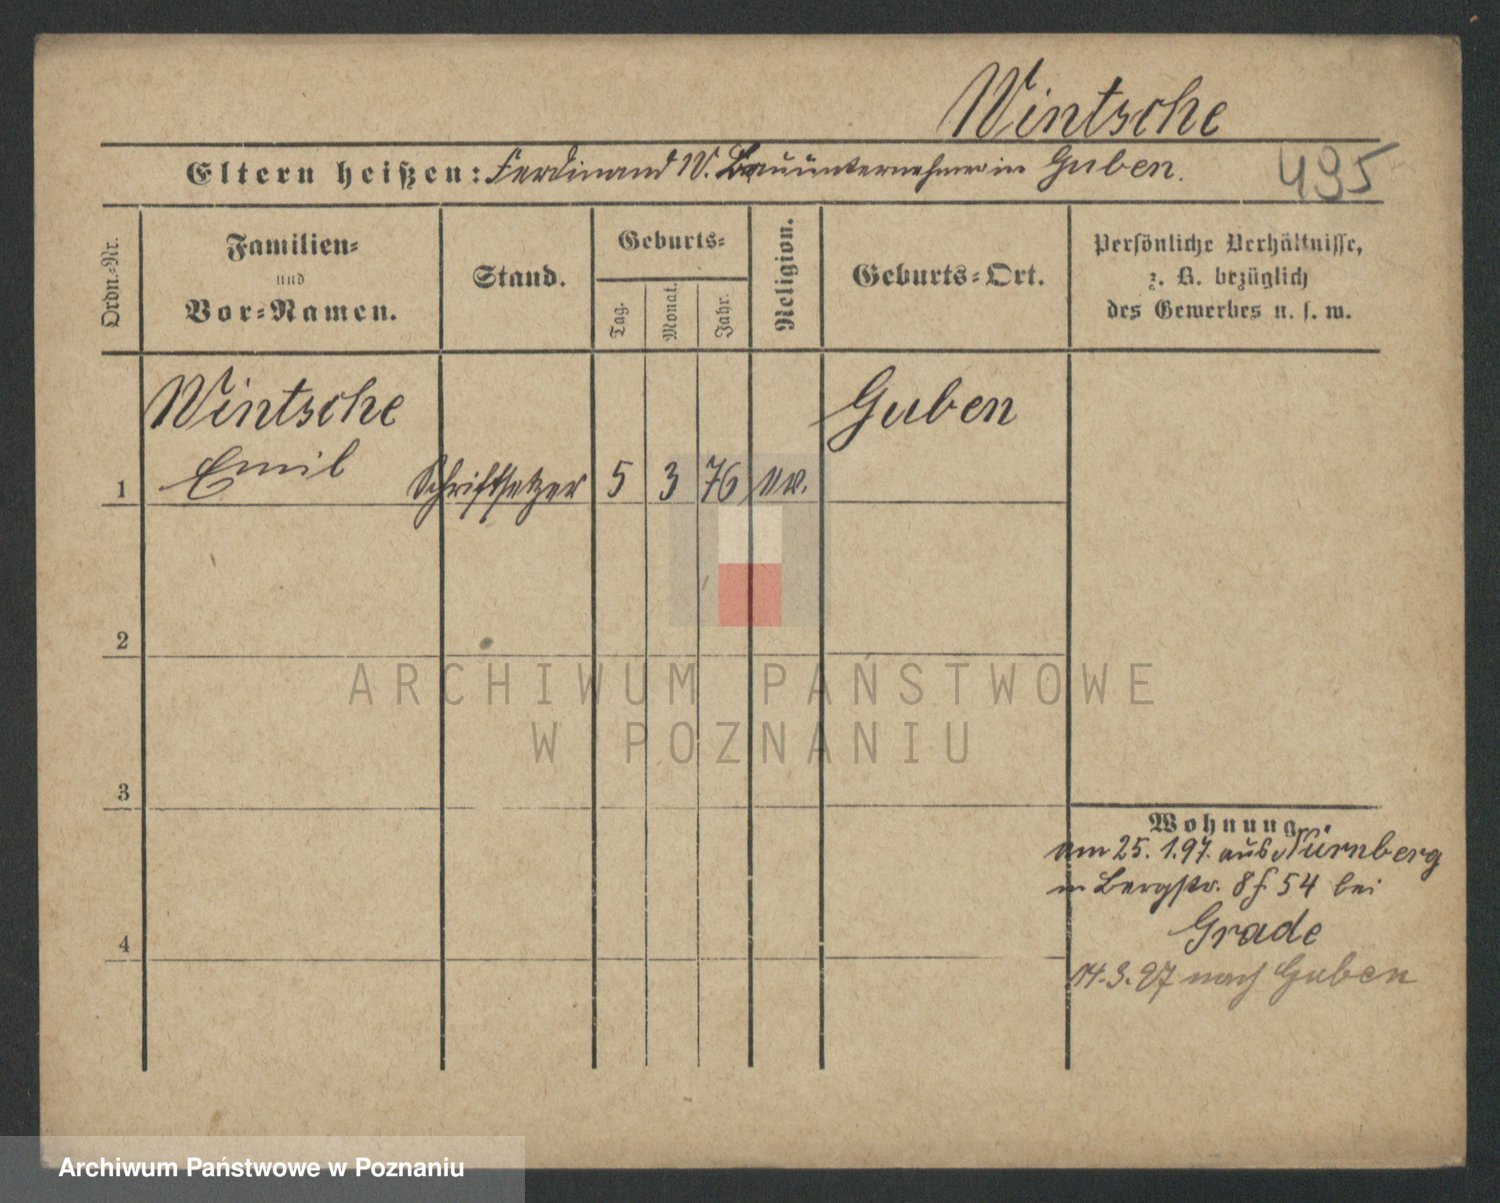 Wintsche
Eltern heißen: Ferdinand W. Bauunternehmer in Guben.
495
Ordn.-Nr.
Familien-
und
Vor-Namen.
Stand.
Geburts-
Tag.
Monat.
Jahr.
Religion.
Geburts-Ort.
Persönliche Verhältnisse,
z. B. bezüglich
des Gewerbes u. s. w.
Wintsche
Emil
1
Schriftsetzer
5
3
76
ev.
Guben
2
3
4
Wohnung.
am 25. 1. 97. aus Nürnberg
n Bergstr. 8 f 54 bei
Grade
14.3.97 nach Guben
ARCHIWUM PAŃSTWOWE
W POZNANIU
Archiwum Państwowe w Poznaniu